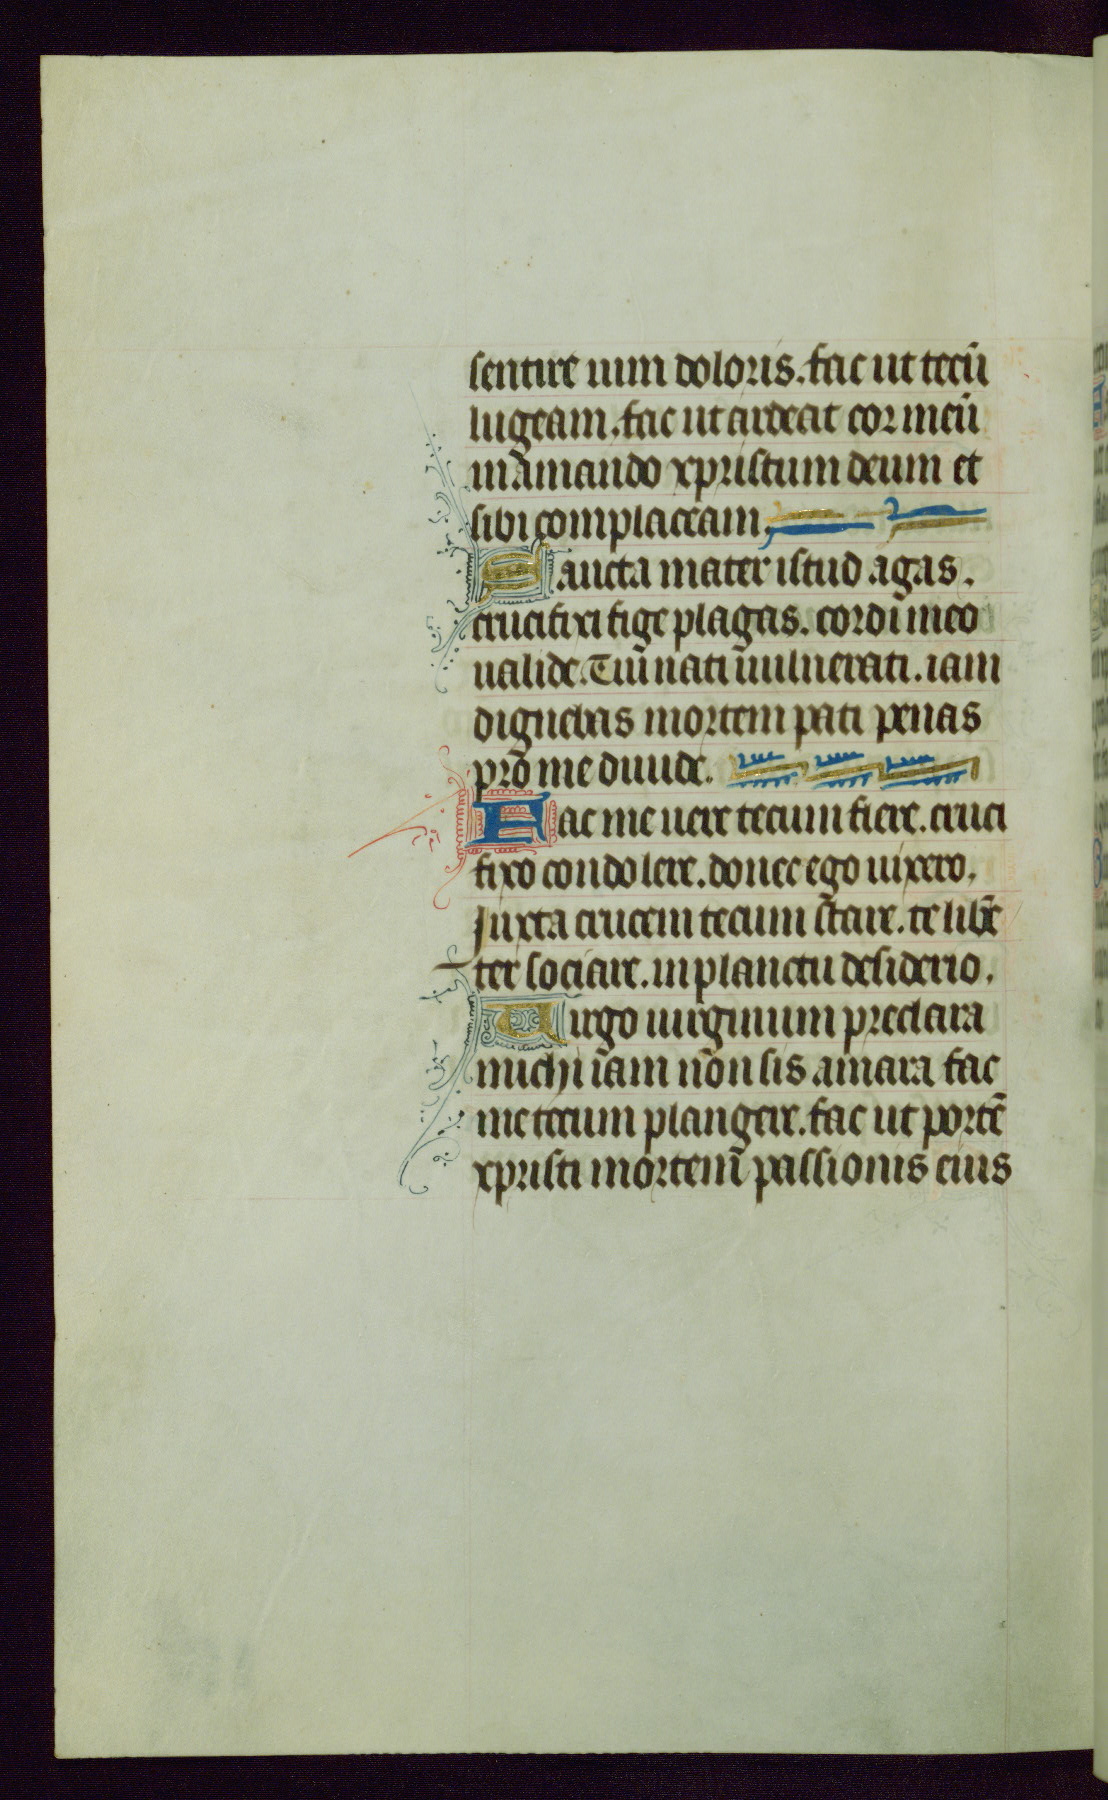 sentire uim doloris. fac ut tecū
lugeam. fac ut ardeat cor meū
in amando xpristum deum et
sibi complaceam.
Sancta mater istud agas.
crucifixi fige plagas. cordi meo
ualide. Tui nati uulnerati. iam
dignebas mortem pati penas
pro me diuide.
Fac me uere tecum flere. cruci
fixo condolere. donec ego uixero.
Juxta crucem tecum stare. te libē
ter sociare. in planctu desiderio.
Uirgo uirginum preclara
michi iam non sis amara fac
me tecum plangere. fac ut portē
xpristi mortem passionis eius